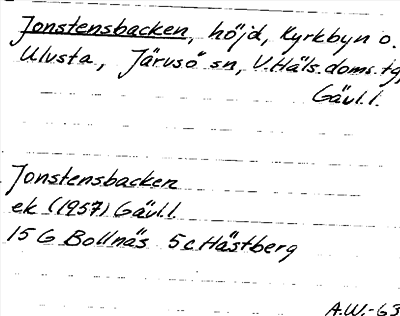 Jonstensbacken, höjd, Kyrkbyn o.
Ulvsta, Järvsö sn, V.Häls.doms.tg,
Gävl.l.
Jonstensbacken
ek (1957) Gävl.l.
15 G Bollnäs 5c Hästberg
A.W.-63